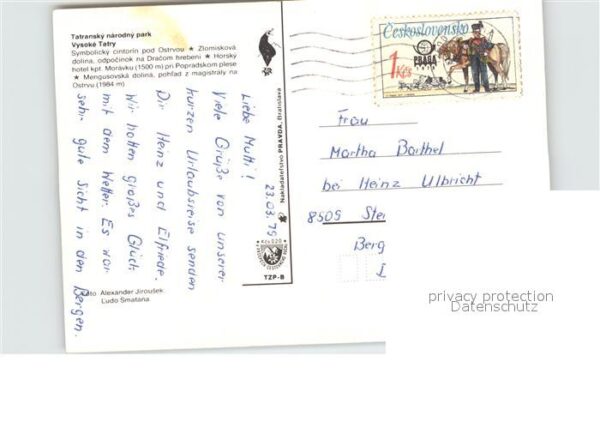 Tatranský národný park
Vysoké Tatry
Symbolický cintorín pod Ostrvou ★ Zlomisková
dolina, odpočinok na Dračom hrebeni ★ Horský
hotel kpt. Morávku (1500 m) pri Popradskom plese
★ Mengusovská dolina, pohľad z magistrály na
Ostrvu (1984 m)
Liebe Mutti!
23.03.79
Viele Grüße von unserer
kurzen Urlaubsreise senden
Dir Heinz und Elfriede.
Wir hatten großes Glück
mit dem Wetter. Es war
sehr gute Sicht in den Bergen.
Foto: Alexander Jiroušek,
Ludo Smataňa
Nakladateľstvo PRAVDA, Bratislava
Kčs 0,20
TZP-B
Československo
1 Kčs
PRAGA
1978
Frau
Martha Barthel
bei Heinz Ulbricht
8509
Berg
privacy protection
Datenschutz